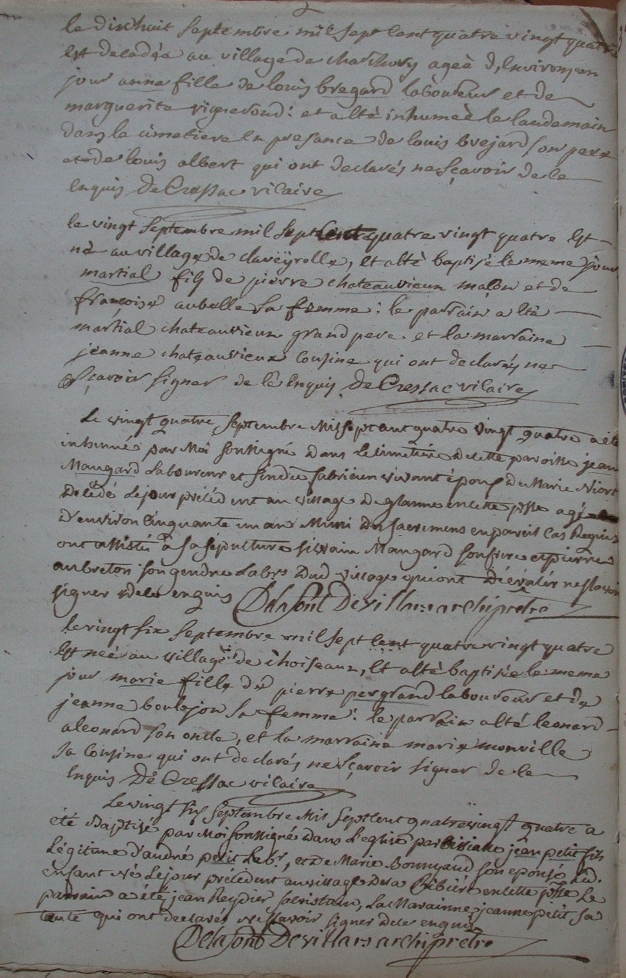 le dixhuit septembre mil sept cent quatre vingt quatre
est decedée au village de agée d'environ un
jour anne fille de louis bregard laboureur et de
marguerite vigneroud : et a été inhumée le landemain
dans le cimetiere en presance de louis brejard son pere
et de louis albert qui ont declarés ne sçavoir de ce
enquis De Cressac vicaire
le vingt septembre mil sept cent quatre vingt quatre est
né au village de claveyrolle, et a été baptisé le meme jour
martial fils de pierre chateauvieux et de
françoise aubelle sa femme : le parrain a été
martial chateauvieux grand pere et la marraine
jeanne chateauvieux cousine qui ont declarés ne
sçavoir signer de ce enquis De Cressac vicaire
Le vingt quatre septembre Mil sept cent quatre vingt quatre a été
inhumé par Moi soussigné dans le cimetiere de cette paroisse jean
Maugard Laboureur et sindic fabricien vivant époux de Marie
décédé le jour précédent au village De en cette psse agé
d'environ cinquante un an Muni des sacremens en pareil cas Requis
ont assisté à sa sepulture silvain Maugard son frere et pierre
aubreton son gendre Labrs Dud. village qui ont De ne scavoir
signer de ce enquis Delafont Devillars archipretre
le vingt six septembre mil sept cent quatre vingt quatre
est née au village de choiseau, et a été baptisée le meme
jour marie fille de pierre pergrand laboureur et de
jeanne boulejon sa femme : le parrain a été leonard
aleonard son oncle, et la marraine marie monville
sa cousine qui ont declarés ne sçavoir signer de ce
enquis De Cressac vicaire
Le vingt six septembre Mil Sept Cent quatre vingt quatre a
été Baptisé par Moi soussigné dans l'eglise paroissiale jean petit fils
Légitime d'andré petit Labr, et de Marie son epouse Led.
enfant né Le jour précédent au village De la en cette psse Le
parrain a été jean La Maraine jeanne petit sa
tante qui ont declarés ne scavoir signer de ce enquis
Delafont Devillars archipretre